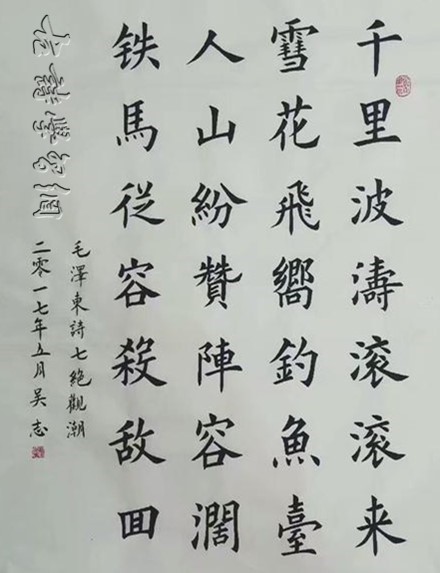 千里波濤滚滚来
雪花飛嚮釣魚臺
人山紛贊陣容濶
铁馬従容殺敌囬
毛澤東詩七絶觀潮
二零一七年五月吴志